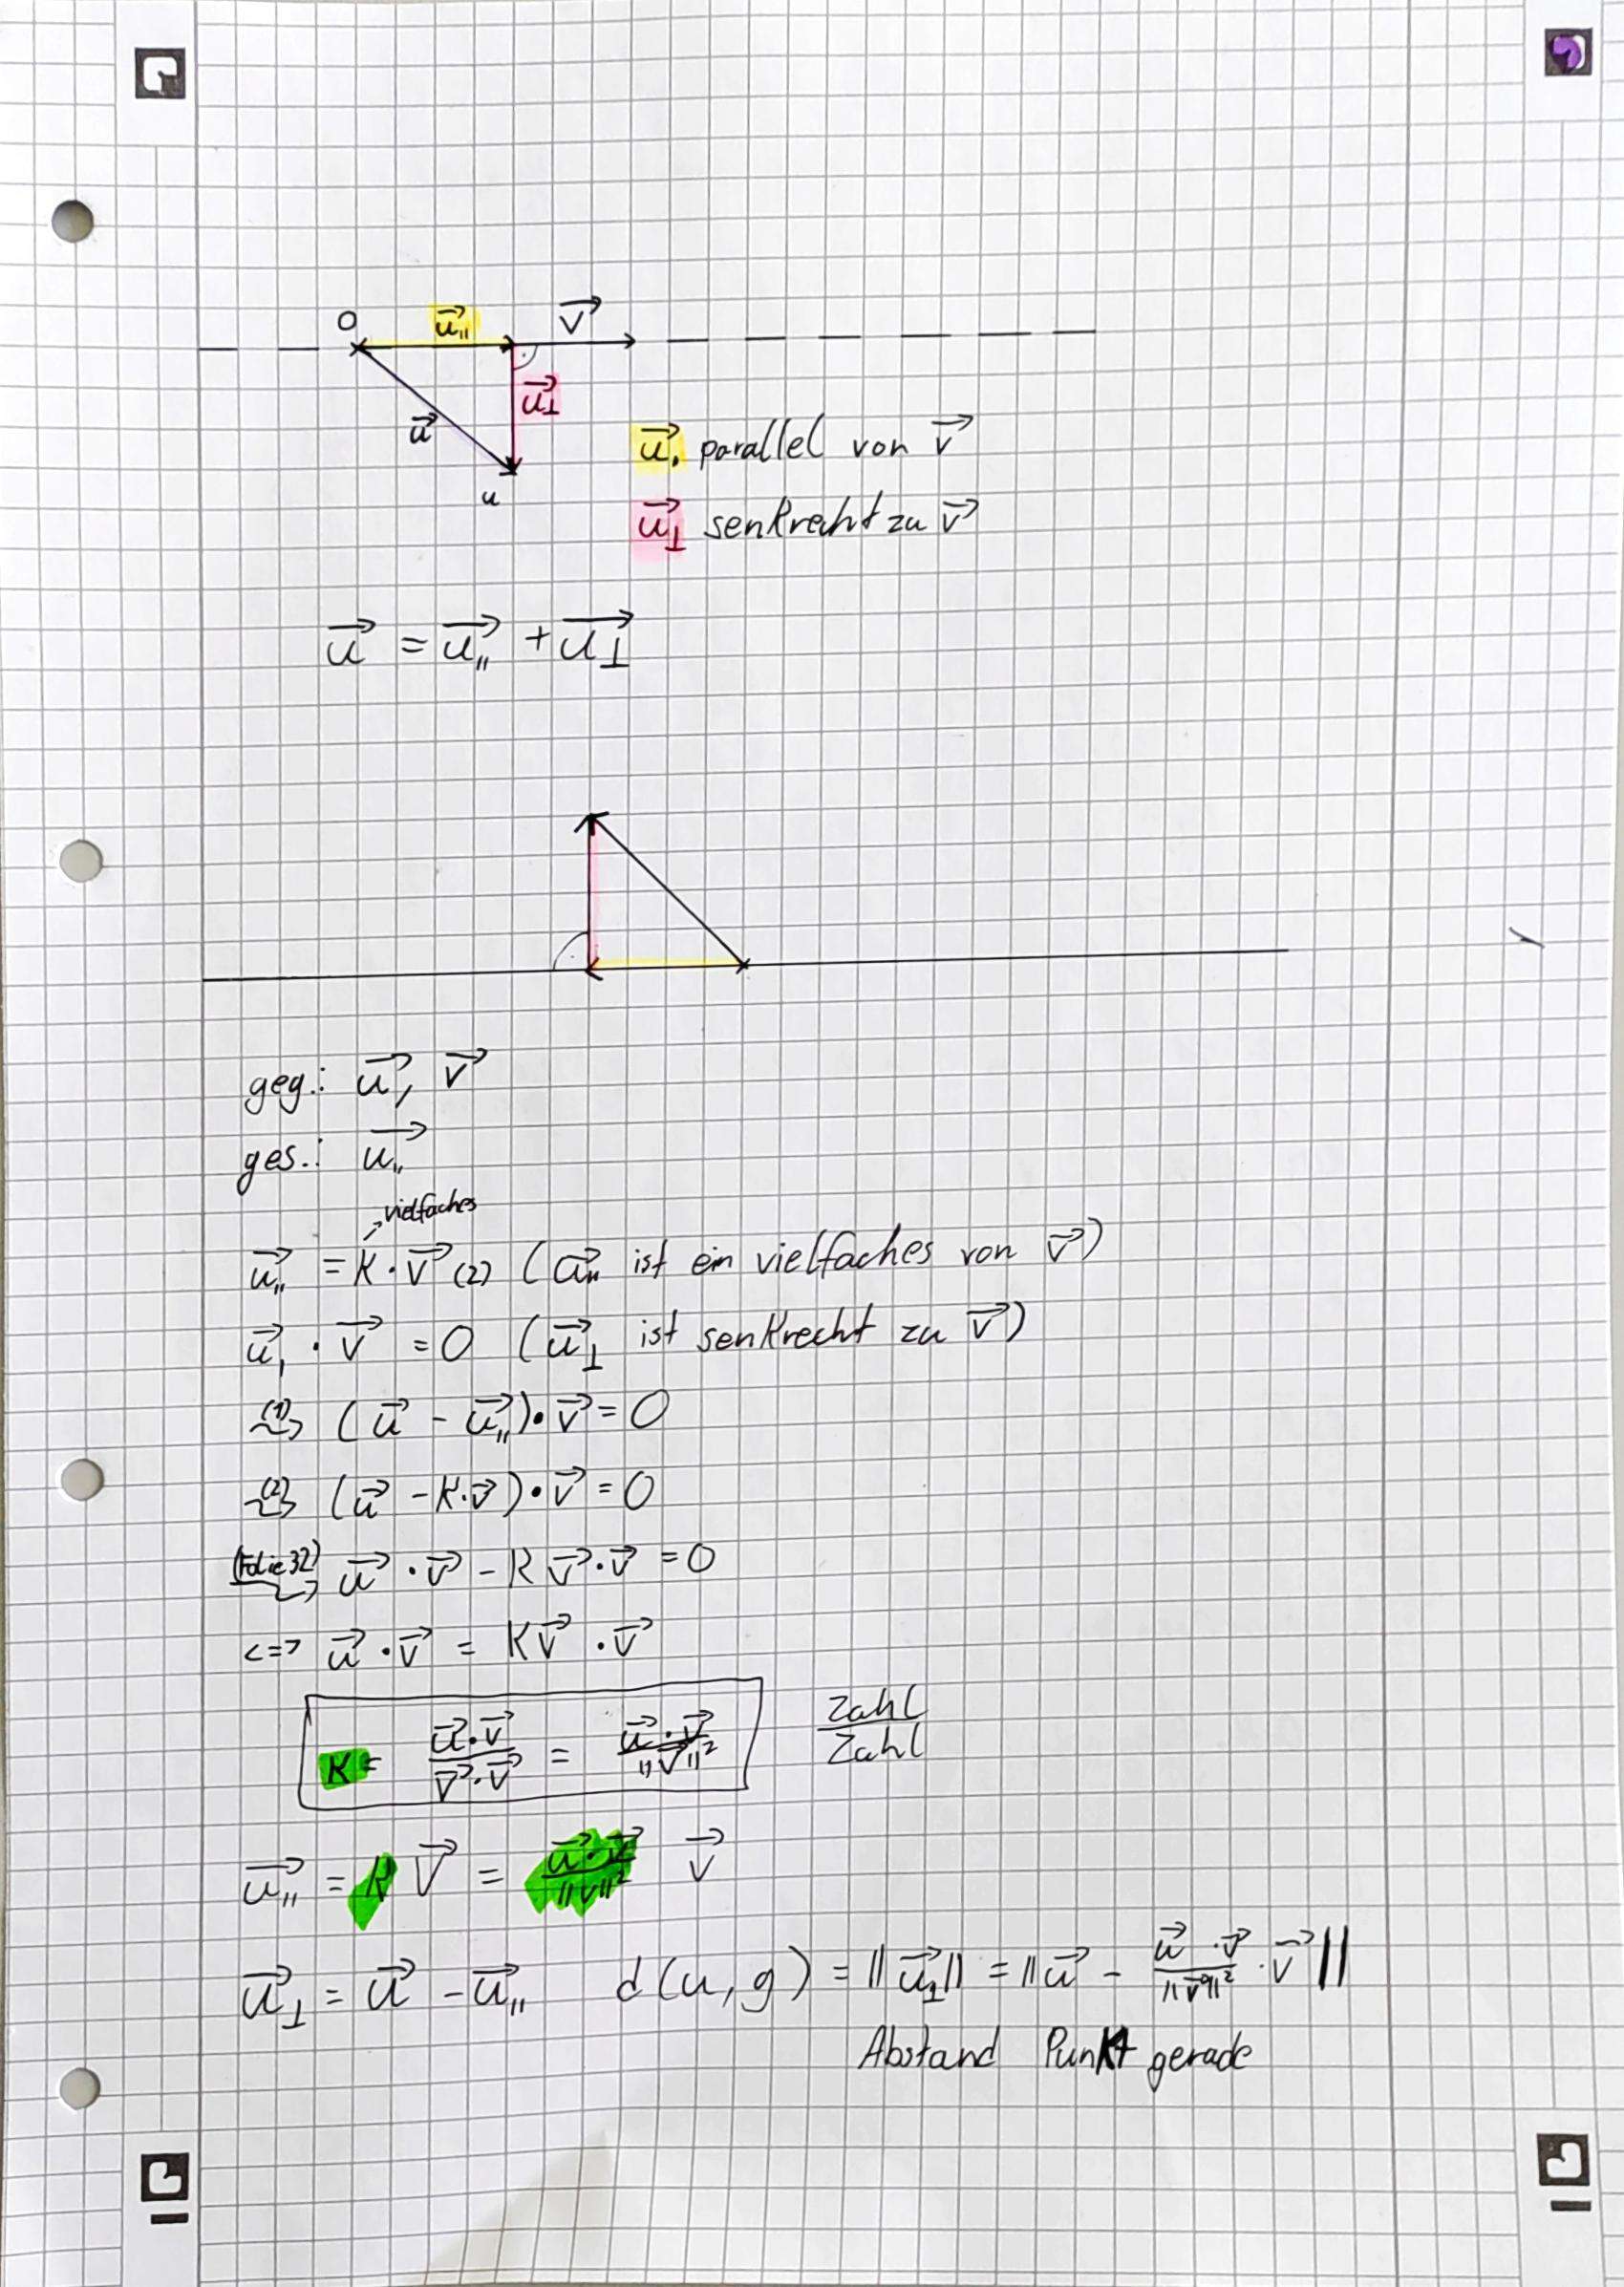 O u⃗ₗₗ v⃗
u⃗⊥
u⃗
u
u⃗, parallel von v⃗
u⃗⊥ senkrecht zu v⃗
u⃗ = u⃗ₗₗ + u⃗⊥
geg.: u⃗, v⃗
ges.: u⃗ₗₗ
vielfaches
u⃗ₗₗ = K · v⃗ (2) (u⃗ₗₗ ist ein vielfaches von v⃗)
u⃗₁ · v⃗ = 0 (u⃗⊥ ist senkrecht zu v⃗)
(1) (u⃗ - u⃗ₗₗ) · v⃗ = 0
(2) (u⃗ - K·v⃗) · v⃗ = 0
(Folie 32) u⃗ · v⃗ - K v⃗ · v⃗ = 0
<=> u⃗ · v⃗ = K v⃗ · v⃗
K = u⃗·v⃗ / v⃗·v⃗ = u⃗·v⃗ / ||v⃗||² Zahl / Zahl
u⃗ₗₗ = K v⃗ = u⃗·v⃗ / ||v||² v⃗
u⃗⊥ = u⃗ - u⃗ₗₗ d(u, g) = ||u⃗⊥|| = ||u⃗ - u⃗·v⃗ / ||v⃗||² · v⃗||
Abstand Punkt gerade